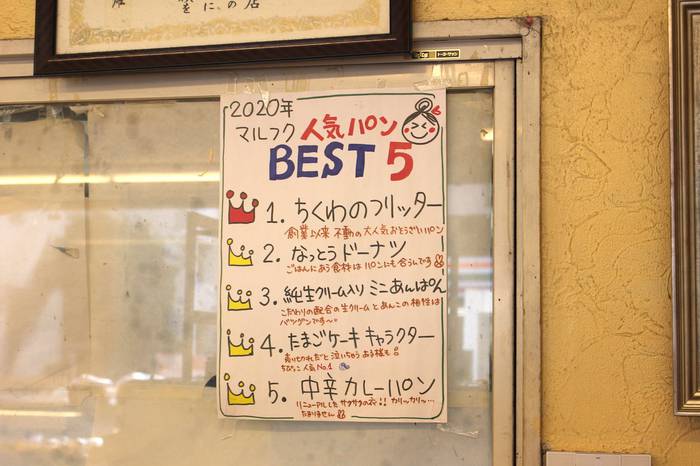 の店
2020年
マルフク 人気パン
BEST 5
1. ちくわのフリッター
創業以来 不動の大人気おそうざいパン
2. なっとうドーナツ
ごはんにあう食材は パンにも合うんです
3. 純生クリーム入り ミニあんぱん
こだわりの配合の生クリームとあんこの相性は
バツグンです〜
4. たまごケーキ キャラクター
売り切れだと泣いちゃう お子様も
ちびっこ人気No.1
5. 中辛カレーパン
リニューアルした サクサクの衣!! カリッカリッ…
たまりません